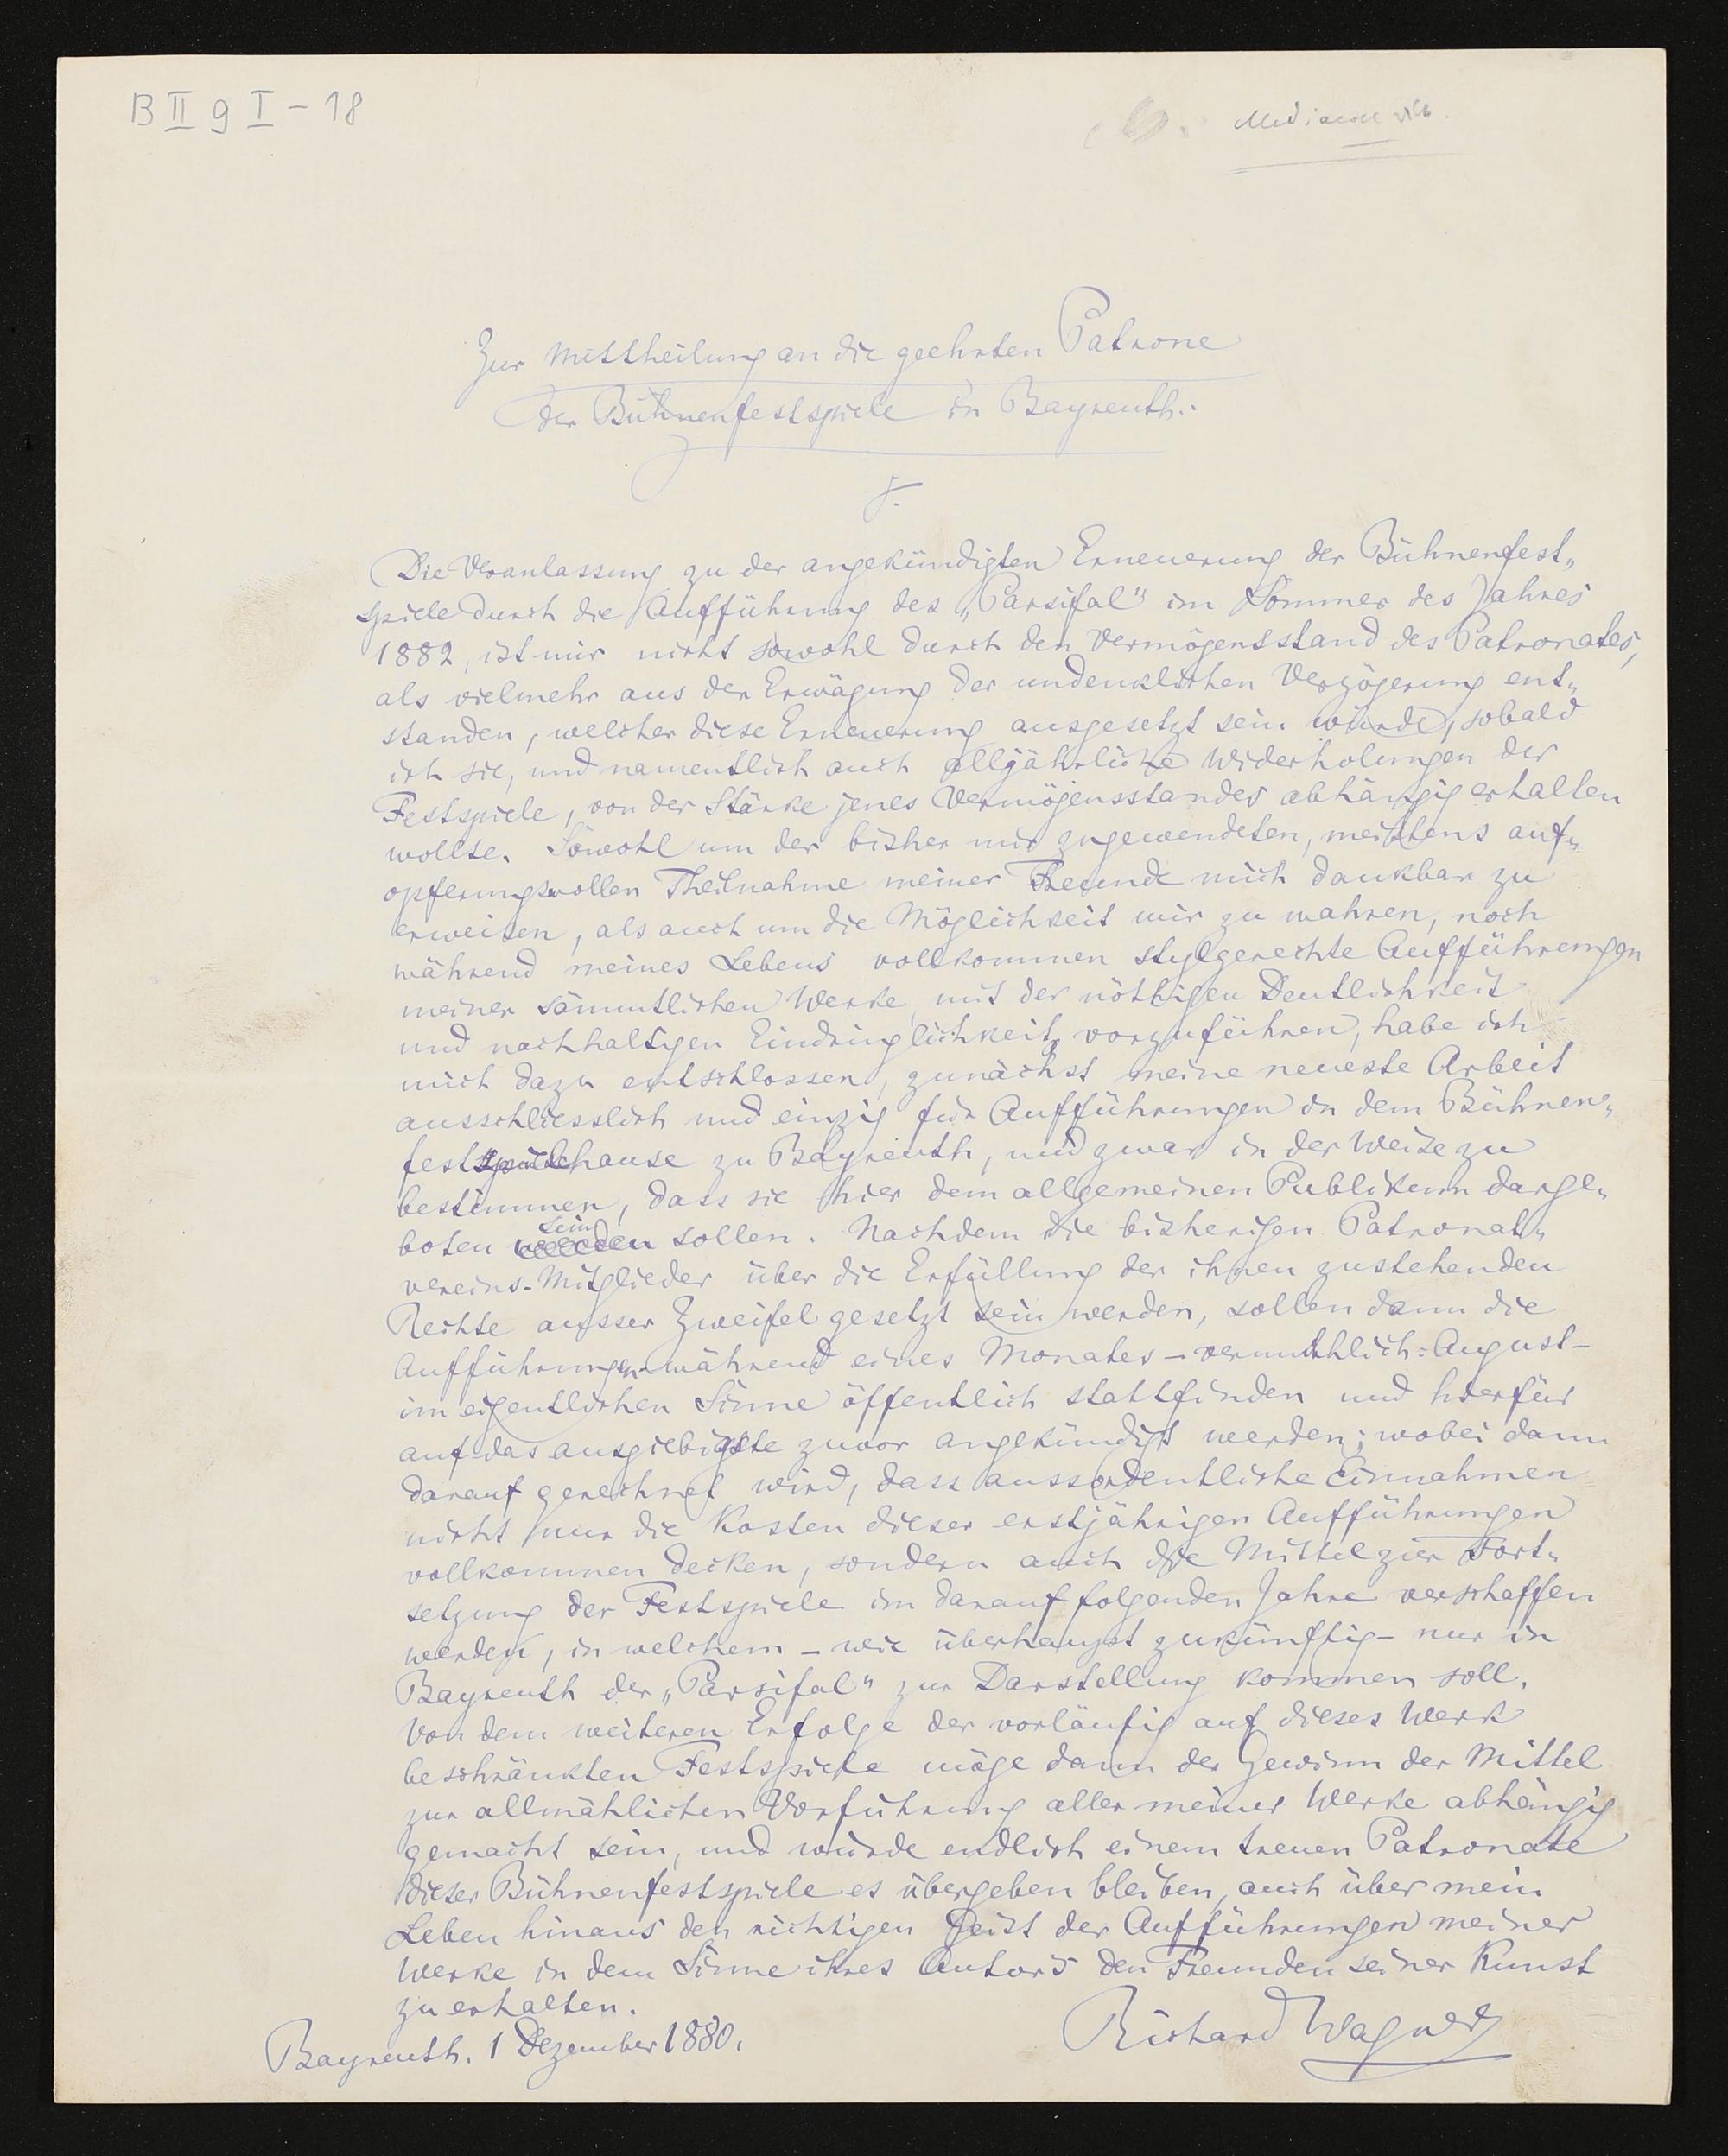 B II g I - 18
Zur Mittheilung an die geehrten Patrone
der Bühnenfestspiele in Bayreuth.
Die Veranlassung zu der angekündigten Erneuerung der Bühnenfest„
spiele durch die Aufführung des „Parsifal" im Sommer des Jahres
1882, ist mir nicht sowohl durch den Vermögensstand des Patronates,
als vielmehr aus der Erwägung der undenklichen Verzögerung ent„
standen, welcher diese Erneuerung ausgesetzt sein würde, sobald
ich sie, und namentlich auch alljährliche Widerholungen der
Festspiele, von der Stärke jenes Vermögensstandes abhängig erhalten
wollte. Sowohl um der bisher mir zugewendeten, meistens auf„
opferungsvollen Theilnahme meiner Freunde mich dankbar zu
erweisen, als auch um die Möglichkeit mir zu wahren, noch
während meines Lebens vollkommen stylgerechte Aufführungen
meiner sämmtlichen Werke, mit der nöthigen Deutlichkeit
und nachhaltigen Eindringlichkeit vorzuführen, habe ich
mich dazu entschlossen, zunächst meine neueste Arbeit
ausschliesslich und einzig für Aufführungen in dem Bühnen„
festspielhause zu Bayreuth, und zwar in der Weise zu
bestimmen, dass sie hier dem allgemeinen Publikum darge„
boten werden sein sollen. Nachdem die bisherigen Patronat„
vereins-Mitglieder über die Erfüllung der ihnen zustehenden
Rechte ausser Zweifel gesetzt sein werden, sollen dann die
Aufführungen während eines Monates – vermuthlich: August –
im eigentlichen Sinne öffentlich stattfinden und hierfür
auf das ausgiebigste zuvor angekündigt werden; wobei dann
darauf gerechnet wird, dass aussordentliche Einnahmen
nicht nur die Kosten dieser erstjährigen Aufführungen
vollkommen decken, sondern auch die Mittel zur Fort„
setzung der Festspiele im darauf folgenden Jahre verschaffen
werden, in welchem – wie überhaupt zukünftig – nur in
Bayreuth der „Parsifal" zur Darstellung kommen soll.
Von dem weiteren Erfolge der vorläufig auf dieses Werk
beschränkten Festspiele möge dann der Gewinn der Mittel
zur allmählichen Vorführung aller meiner Werke abhängig
gemacht sein, und würde endlich einem treuen Patronate
dieser Bühnenfestspiele es übergeben bleiben, auch über mein
Leben hinaus den richtigen Geist der Aufführungen meiner
Werke in dem Sinne ihres Autors den Freunden seiner Kunst
zu erhalten.
Bayreuth. 1 Dezember 1880.
Richard Wagner